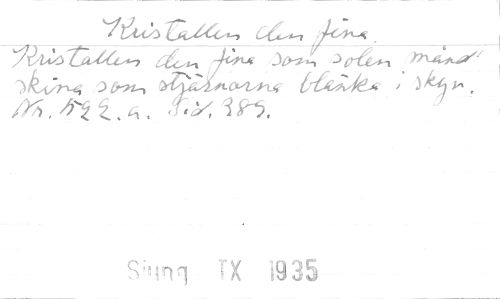 Kristallen den fina.
Kristallen den fina som solen månd'
skina som stjärnorna blänka i skyn.
Nr. 522. a. Sid. 389.
Sjung IX 1935